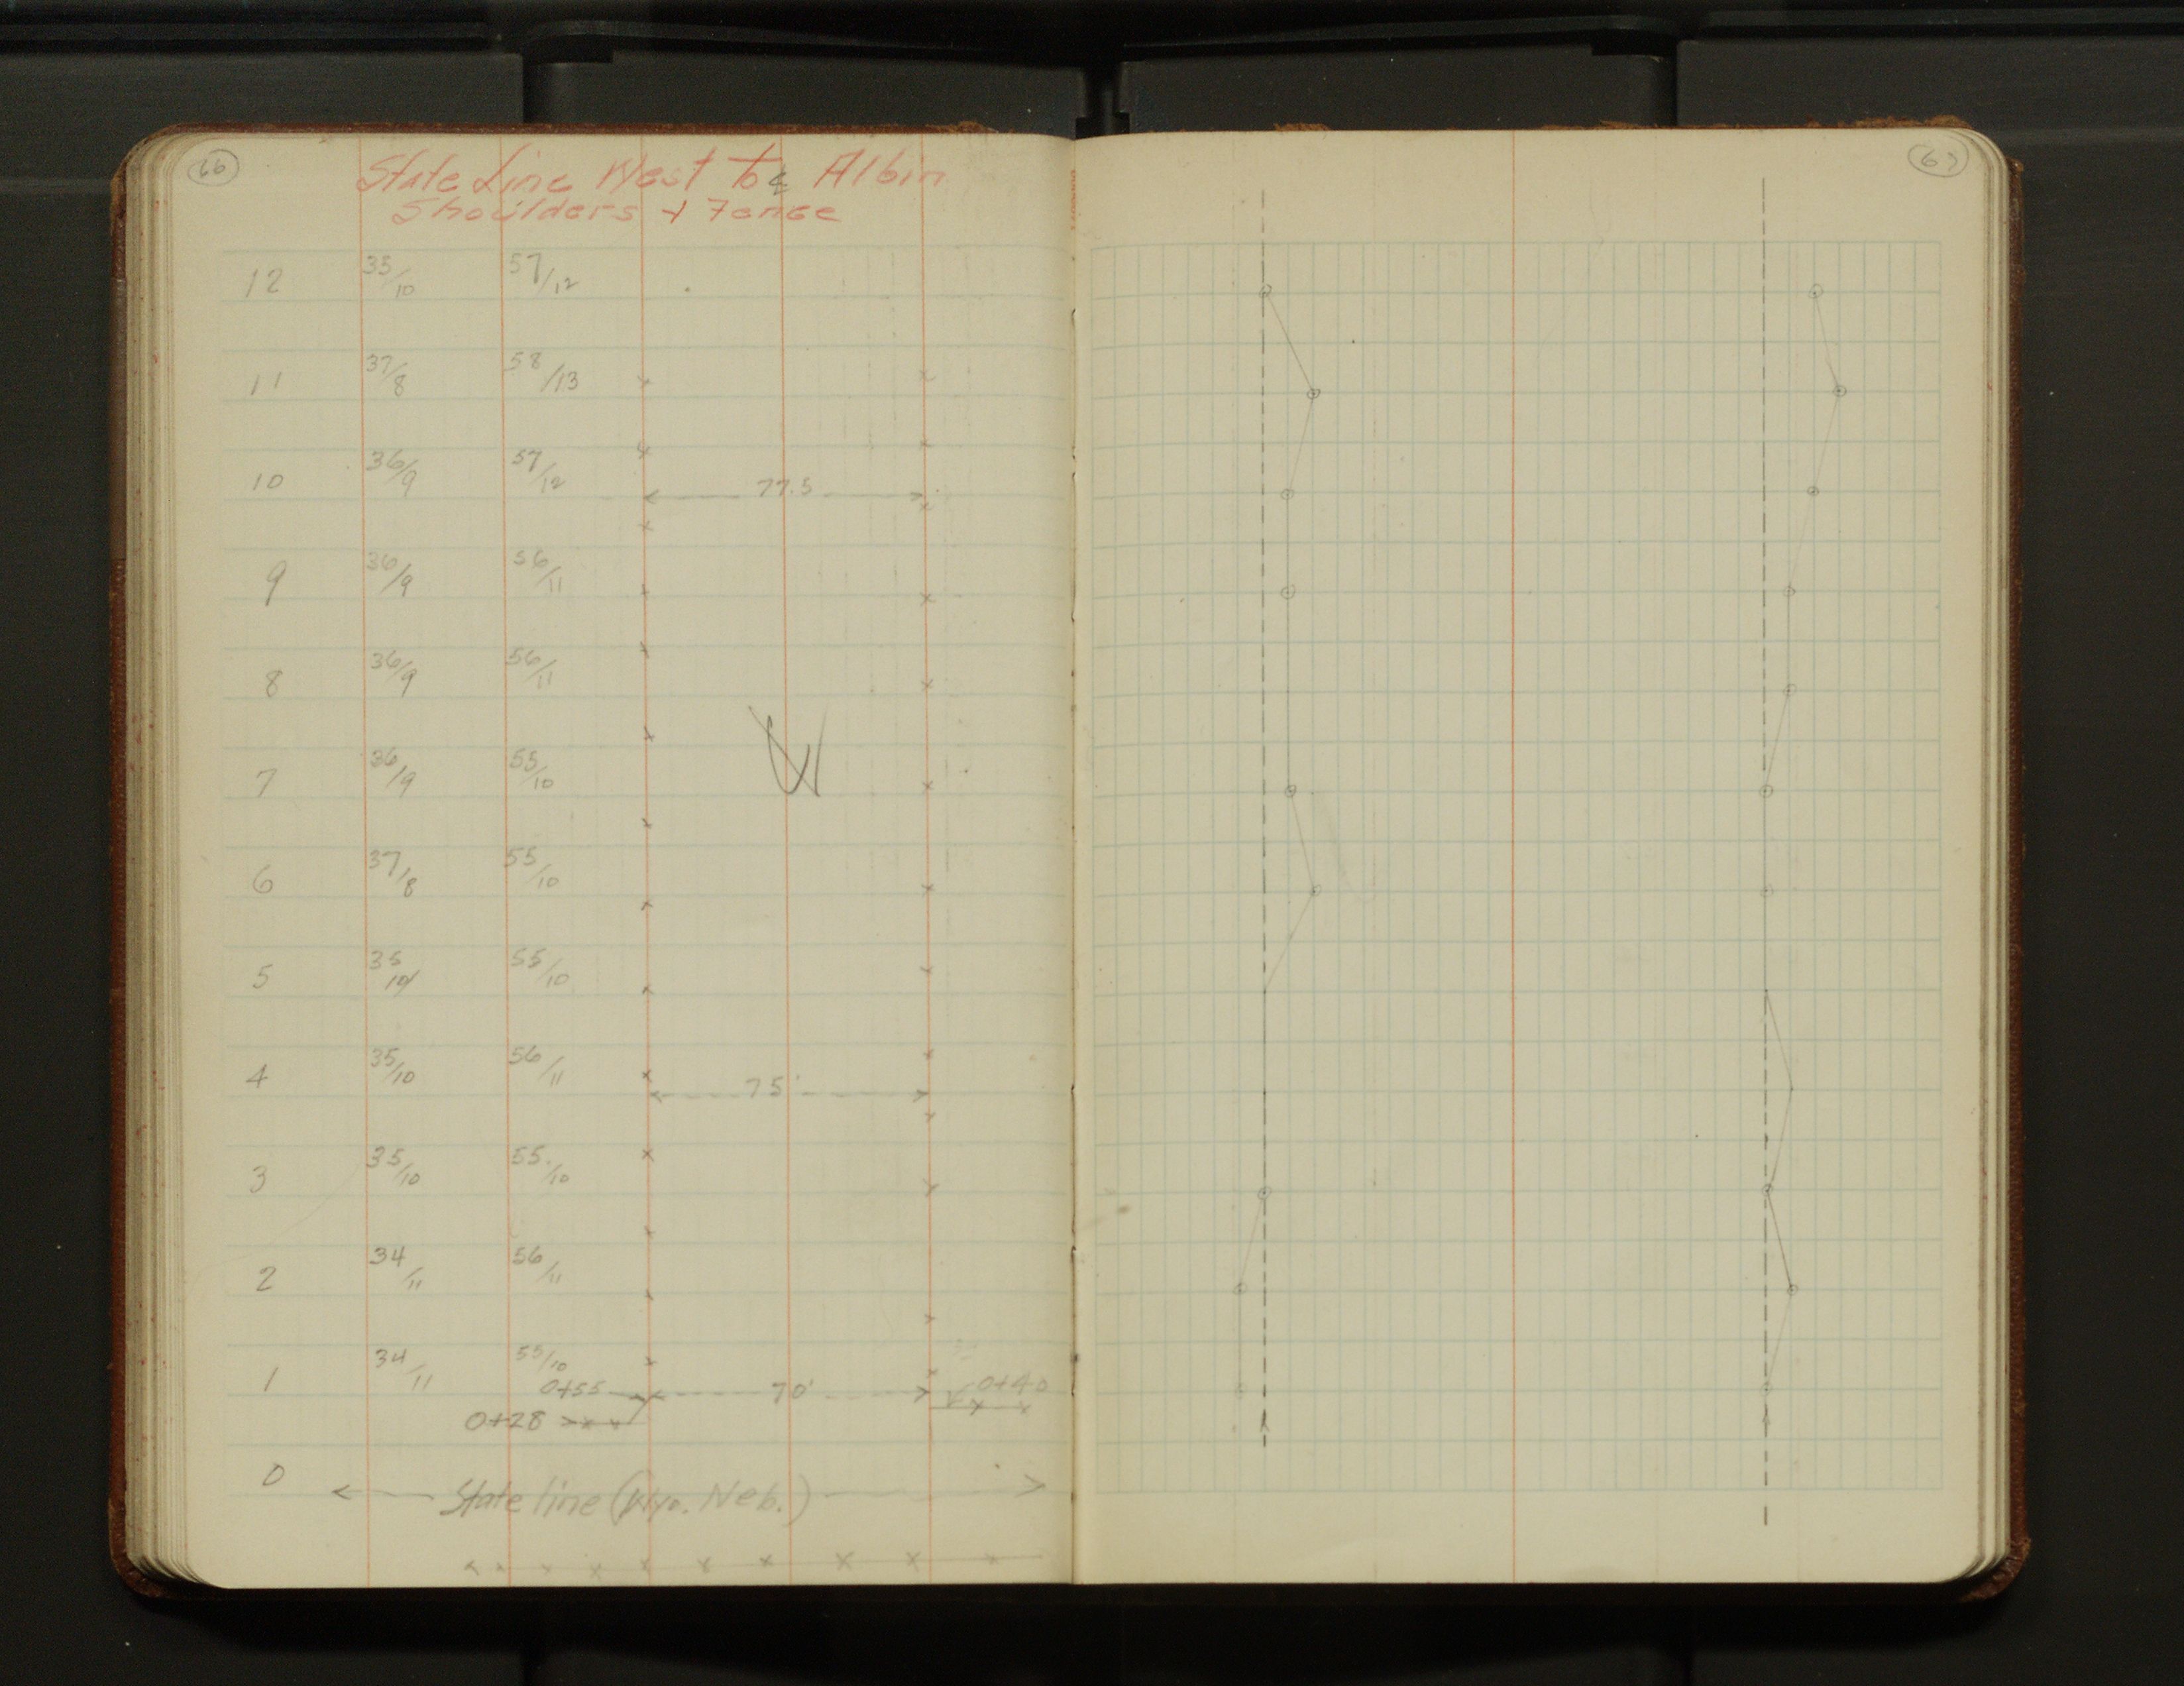 66
State Line West to Albin
Shoulders + Fence
12 35/10 57/12
11 37/8 58/13
10 36/9 57/12
77.5
9 36/9 56/11
8 36/9 56/11
7 36/9 55/10
6 37/8 55/10
5 35/10 55/10
4 35/10 56/11
75'
3 35/10 55/10
2 34/11 56/11
1 34/11 55/10
0+55 70' 0+40
0+28
0
State line (Wyo. Neb.)
67